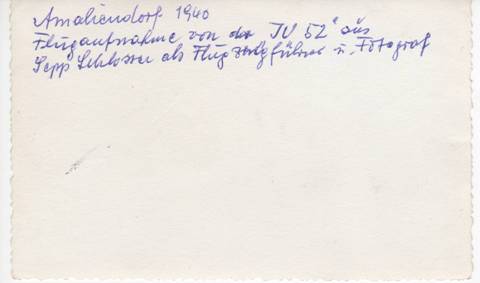 Amaliendorf 1940
Flugaufnahme von der "JU 52" aus
Sepp Schlosser als Flugzeugführer u. Fotograf